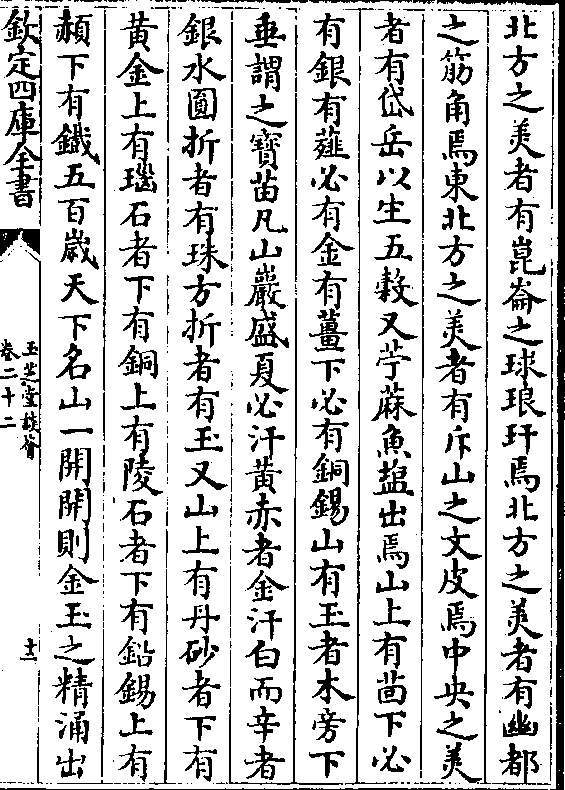 北方之美者有崑崙之球琅玕焉北方之美者有幽都
之筋角焉東北方之美者有斥山之文皮焉中央之美
者有岱岳以生五穀又苧蔴魚塩出焉山上有茴下必
有銀有薤必有金有薑下必有銅錫山有玉者木旁下
垂謂之寶苗凡山巖盛夏必汗黄赤者金汗白而辛者
銀水圓折者有珠方折者有玉又山上有丹砂者下有
黄金上有瑙石者下有銅上有陵石者下有鉛錫上有
赬下有鐵五百歳天下名山一開開則金玉之精涌出
欽定四庫全書
玉芝堂談薈
卷二十二